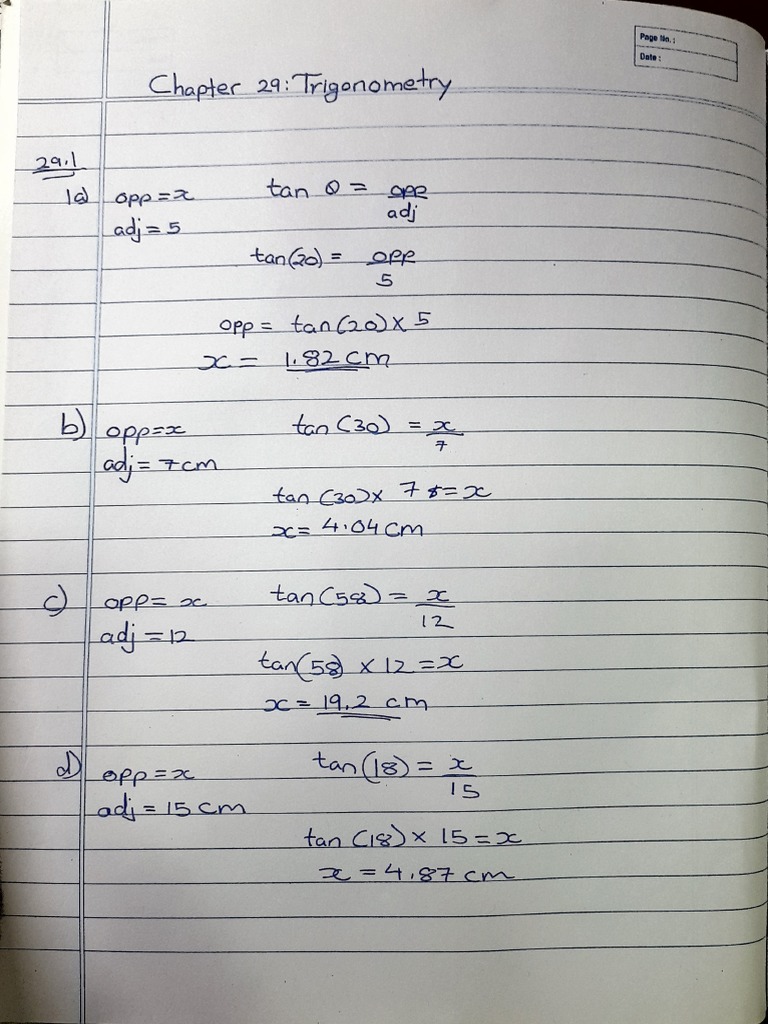 Page No. :
Date :
Chapter 29: Trigonometry
29.1
1a) opp = x tan θ = opp/adj
adj = 5
tan(20) = opp/5
opp = tan(20) x 5
x = 1.82 cm
b) opp=x tan(30) = x/7
adj = 7cm
tan(30)x 7 = x
x= 4.04 cm
c) opp= x tan(58) = x/12
adj = 12
tan(58) x 12 = x
x = 19.2 cm
d) opp=x tan(18) = x/15
adj = 15 cm
tan(18) x 15 = x
x = 4.87 cm